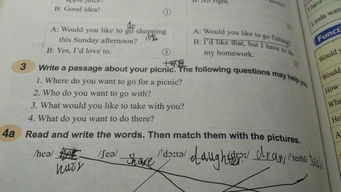 B: Good idea!
do
A: Would you like to go shopping
this Sunday afternoon?
B: Yes, I'd love to.
A: Would you like to go fishing?
B: I'd like that, but I have to do
my homework.
3 Write a passage about your picnic. The following questions may help you.
1. Where do you want to go for a picnic?
2. Who do you want to go with?
3. What would you like to take with you?
4. What do you want to do there?
4a Read and write the words. Then match them with the pictures.
/heə/ /ʃeə/ share /'dɔːtə/ daughter draw
hair
Linda wants
Funct
Would y
Would
How
Wha
He